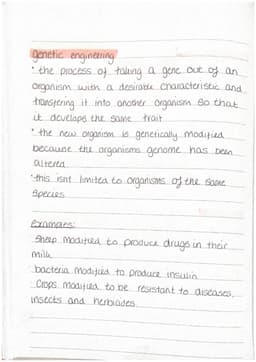 genetic engineering
· the process of taking a gene out of an
organism with a desirable characteristic and
transfering it into another organism so that
it develops the same trait
· the new organism is genetically modified
because the organisms genome has been
altered
· this isnt limited to organisms of the same
species
examples:
sheep modified to produce drugs in their
milk
bacteria modified to produce insulin
crops modified to be resistant to diseases,
insects and herbicides